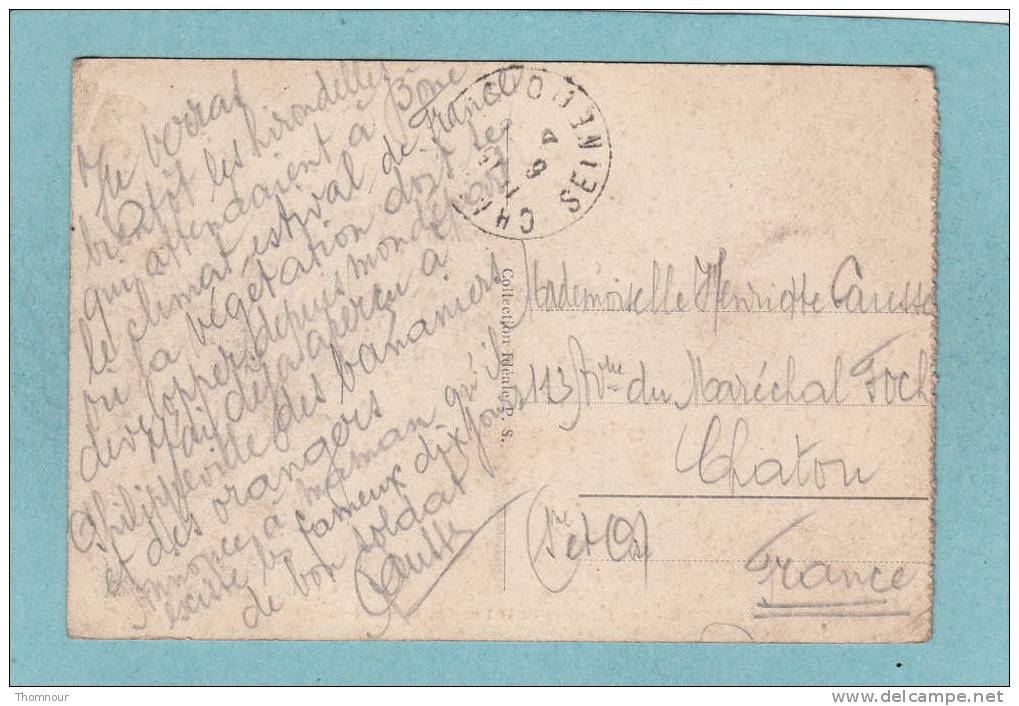 Je verrai
bientôt les hirondelles
qui attendaient à Bône
le climat estival de France
ou la végétation doit se
développer depuis mon départ
déjà aperçu à
Philippeville des bananiers
et des orangers
Annoncez à maman qu'il
existe les fameux dix jours
de bon soldat
Collection Idéale P. S.
Mademoiselle Henriette Causse
113 Avue du Maréchal Foch
Chatou
(Sne et Os)
France
Thomnour
www.delcampe.net